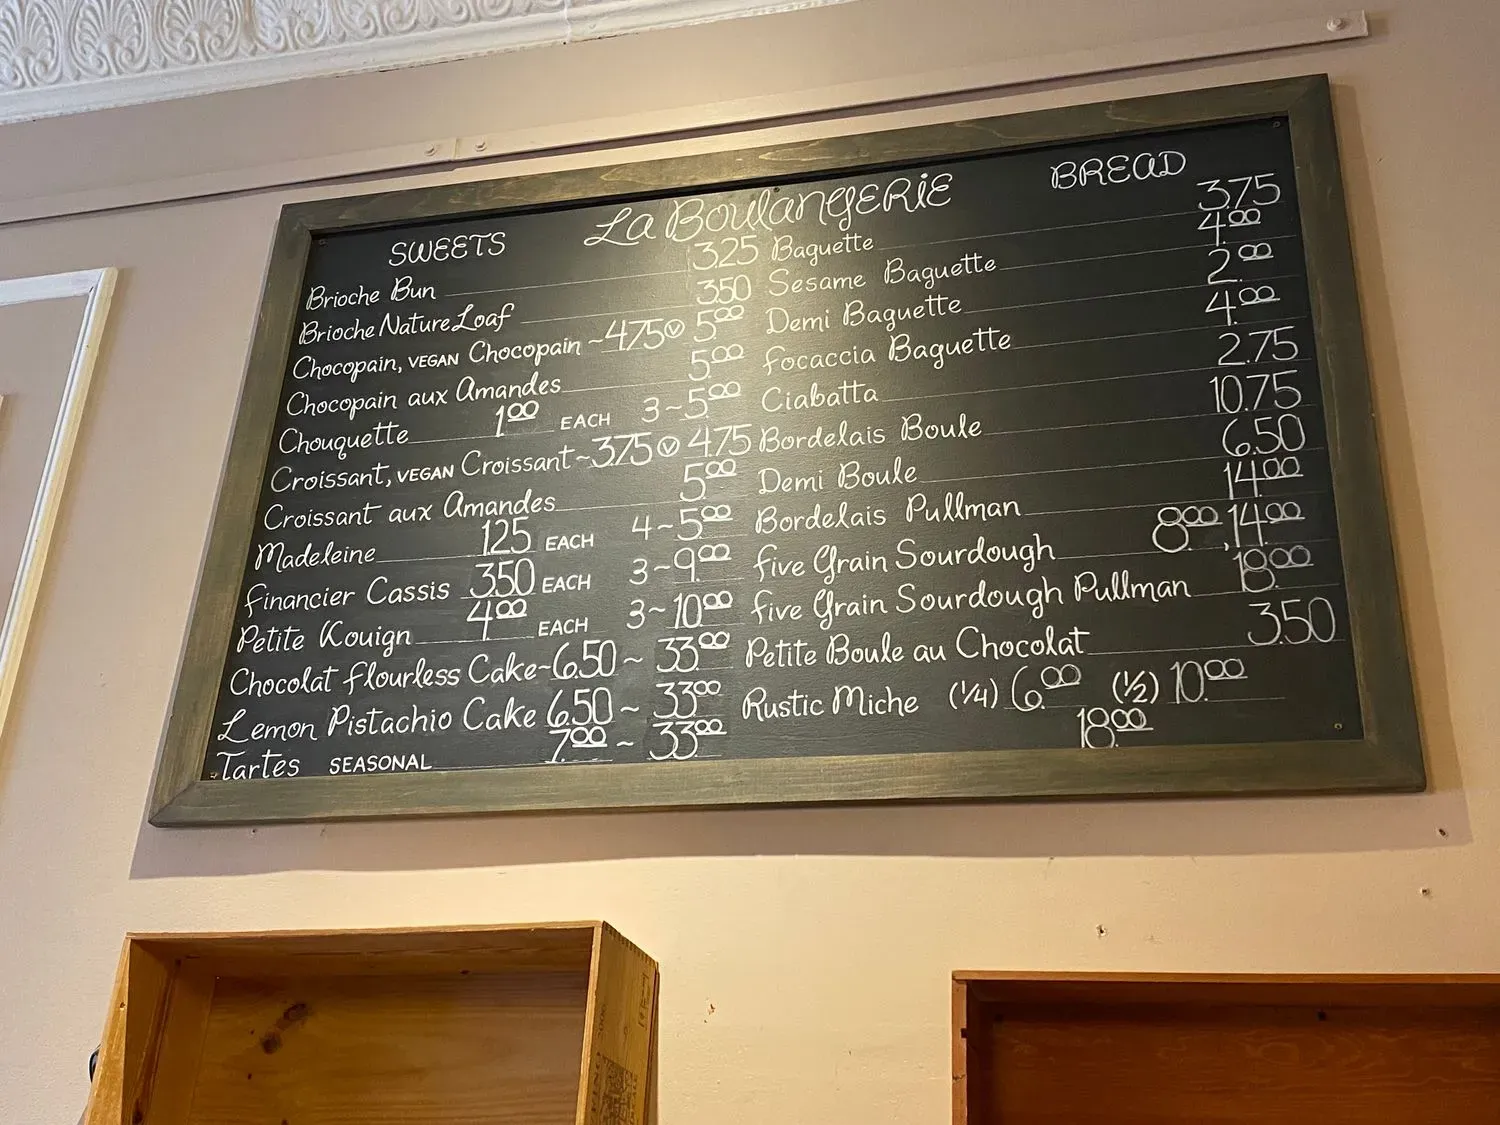 La Boulangerie
SWEETS
Brioche Bun 3.25
Brioche Nature Loaf 3.50
Chocopain, VEGAN Chocopain ~4.75 Ⓥ 5.00
Chocopain aux Amandes 5.00
Chouquette 1.00 EACH 3~5.00
Croissant, VEGAN Croissant ~3.75 Ⓥ 4.75
Croissant aux Amandes 5.00
Madeleine 1.25 EACH 4~5.00
Financier Cassis 3.50 EACH 3~9.00
Petite Kouign 4.00 EACH 3~10.00
Chocolat Flourless Cake ~6.50 ~ 33.00
Lemon Pistachio Cake 6.50 ~ 33.00
Tartes SEASONAL 7.00 ~ 33.00
BREAD
Baguette 3.75
Sesame Baguette 4.00
Demi Baguette 2.00
Focaccia Baguette 4.00
Ciabatta 2.75
Bordelais Boule 10.75
Demi Boule 6.50
Bordelais Pullman 14.00
Five Grain Sourdough 8.00, 14.00
Five Grain Sourdough Pullman 18.00
Petite Boule au Chocolat 3.50
Rustic Miche (1/4) 6.00 (1/2) 10.00
18.00